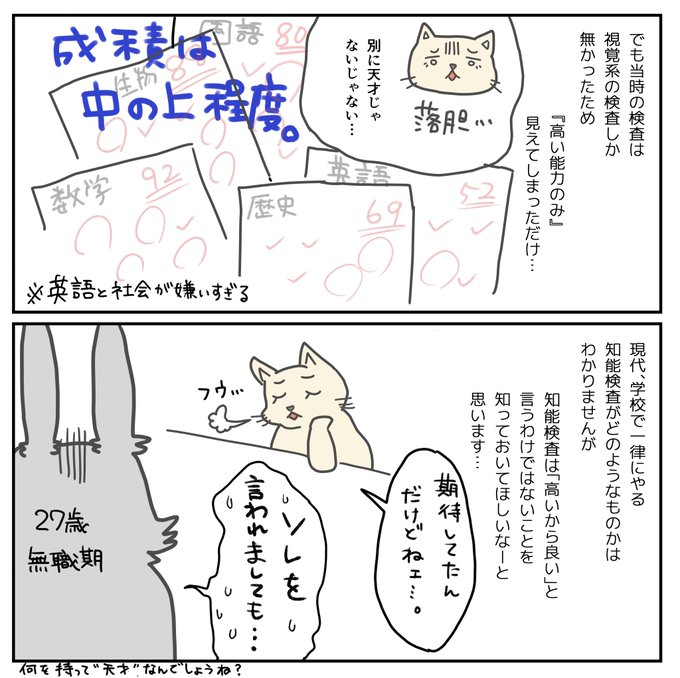 でも当時の検査は
視覚系の検査しか
無かったため
『高い能力のみ』
見えてしまっただけ…
別に天才じゃ
ないじゃない…
落胆…
成積は
中の上程度。
国語 80
生物
数学 92
歴史 69
英語 52
※英語と社会が嫌いすぎる
現代、学校で一律にやる
知能検査がどのようなものかは
わかりませんが
知能検査は「高いから良い」と
言うわけではないことを
知っておいてほしいなーと
思います…
フゥ…
期待してたん
だけどねェ…。
ソレを
言われましても…
27歳
無職期
何を持って"天才"なんでしょうね?